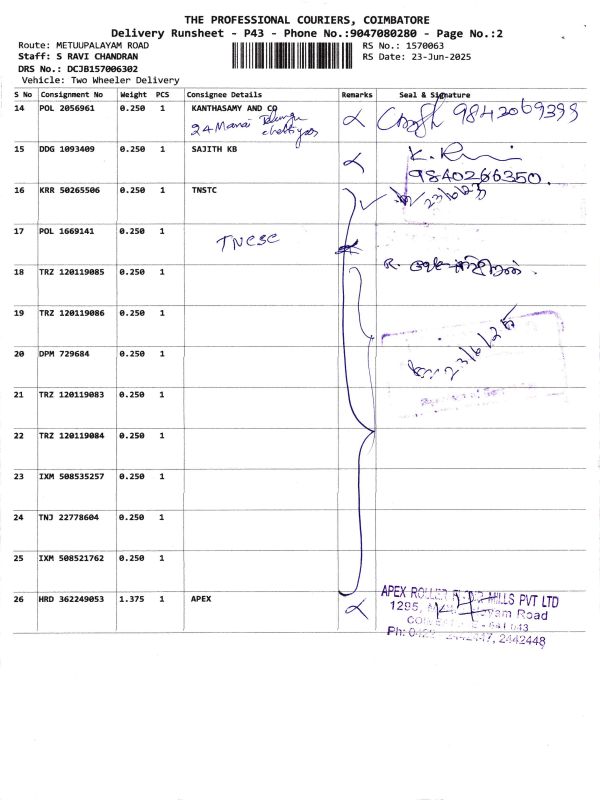 THE PROFESSIONAL COURIERS, COIMBATORE
Delivery Runsheet - P43 - Phone No.:9047080280 - Page No.:2
Route: METUUPALAYAM ROAD RS No.: 1570063
Staff: S RAVI CHANDRAN RS Date: 23-Jun-2025
DRS No.: DCJB157006302
Vehicle: Two Wheeler Delivery
S No Consignment No Weight PCS Consignee Details Remarks Seal & Signature
14 POL 2056961 0.250 1 KANTHASAMY AND CO 9842069399
24 Manai
15 DDG 1093409 0.250 1 SAJITH KB
9840266350.
16 KRR 50265506 0.250 1 TNSTC
17 POL 1669141 0.250 1 TNCSC
18 TRZ 120119085 0.250 1
19 TRZ 120119086 0.250 1
20 DPM 729684 0.250 1 23/6/25
21 TRZ 120119083 0.250 1
22 TRZ 120119084 0.250 1
23 IXM 508535257 0.250 1
24 TNJ 22778604 0.250 1
25 IXM 508521762 0.250 1
26 HRD 362249053 1.375 1 APEX APEX ROLLER MILLS PVT LTD
1295, Road
641 043
Ph: 2442447, 2442448